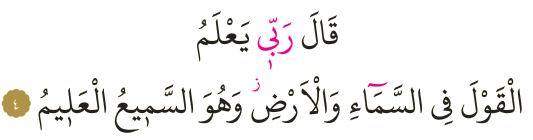 قَالَ رَبّٖي يَعْلَمُ
الْقَوْلَ فِى السَّمَٓاءِ وَالْاَرْضِۘ وَهُوَ السَّمٖيعُ الْعَلٖيمُ ٤